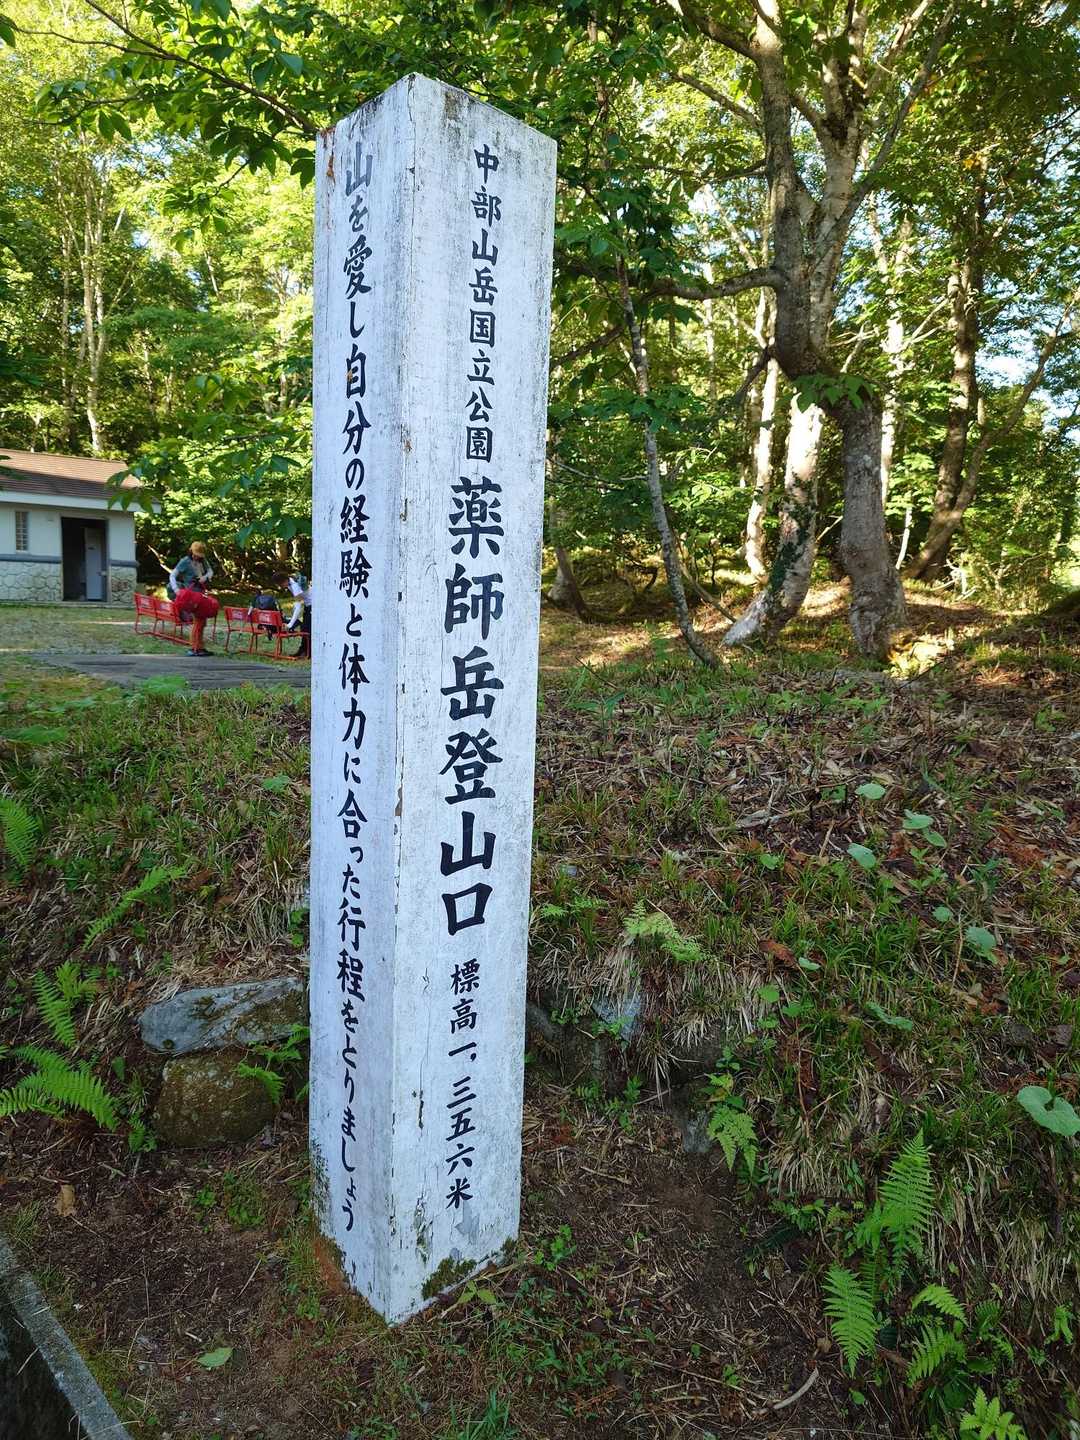 中部山岳国立公園 薬師岳登山口 標高一、三五六米
山を愛し自分の経験と体力に合った行程をとりましょう